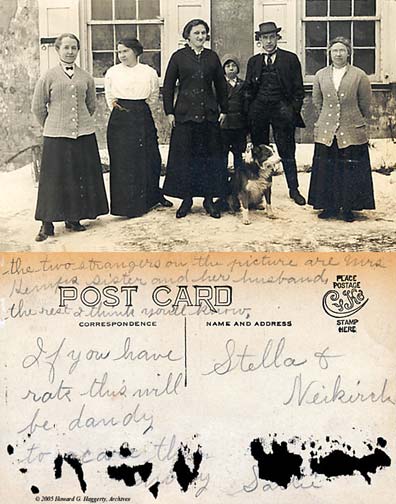 the two strangers on the picture are Mrs
sister and her husband,
the rest I think you'll know,
POST CARD
CORRESPONDENCE
NAME AND ADDRESS
PLACE
POSTAGE
CyKo
STAMP
HERE
If you have
rats this will
be dandy
to scare them
Stella &
Neikirch
Sadie
© 2005 Howard G. Haggerty, Archives